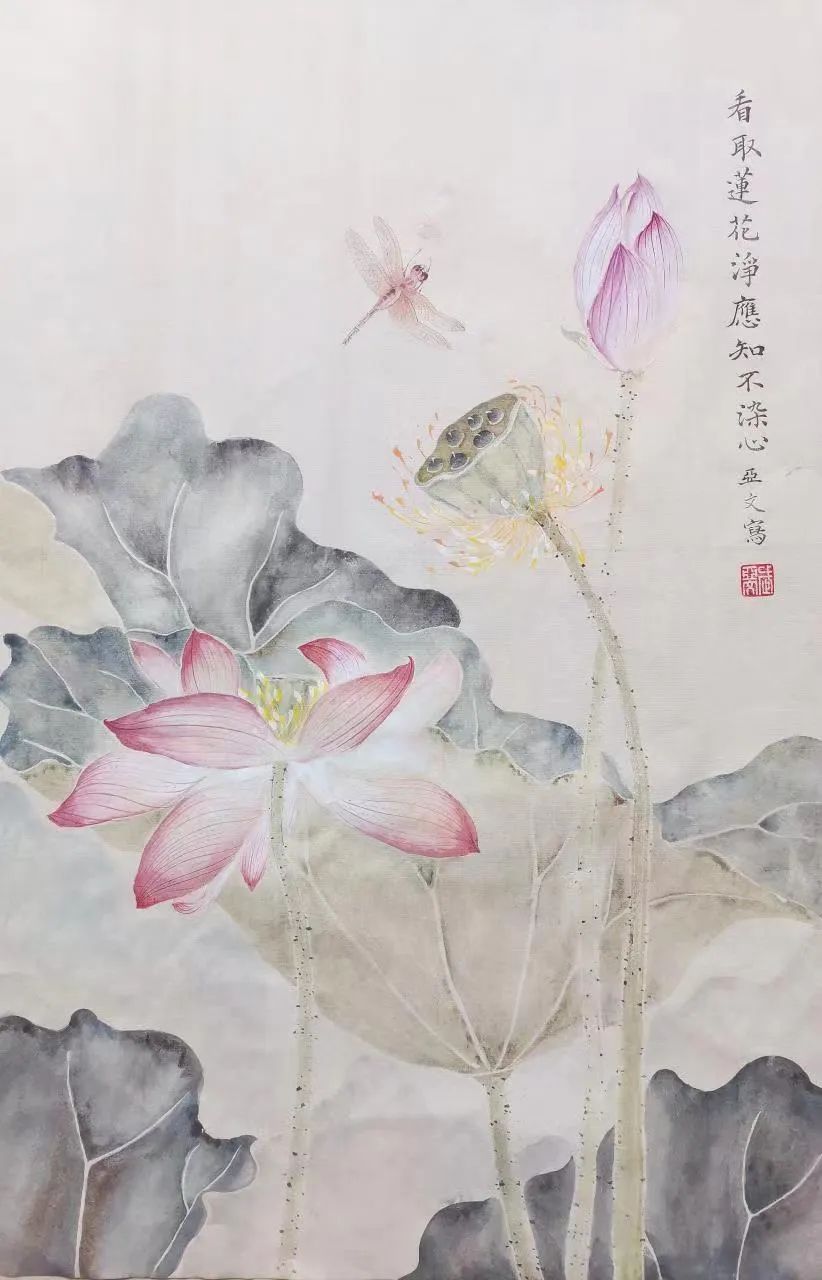 看取蓮花淨應知不染心亞文寫